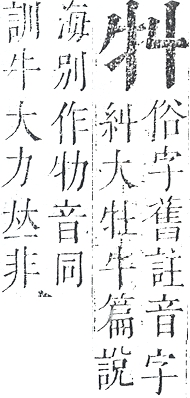 俗字舊註音字
紏大牡牛篇說
海别作牞音同
訓牛大力𠀤非